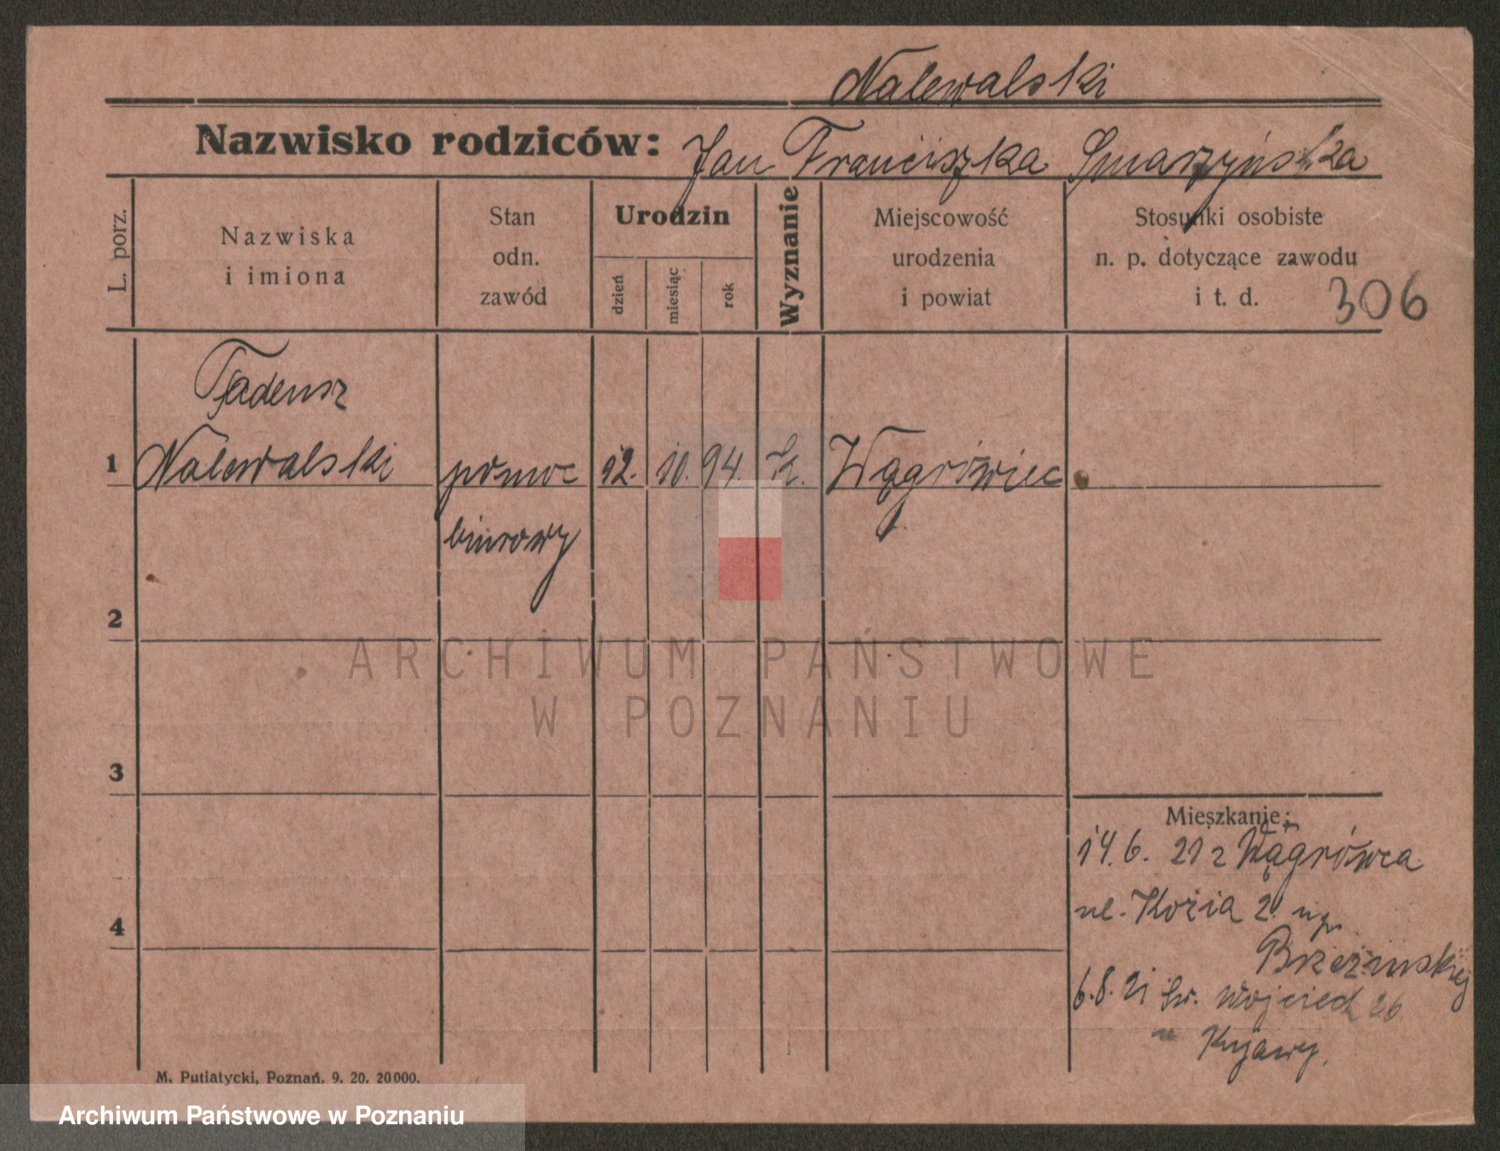 Nalewalski
Nazwisko rodziców: Jan Franciszka Smarzyńska
L. porz.
Nazwiska
i imiona
Stan
odn.
zawód
Urodzin
dzień
miesiąc
rok
Wyznanie
Miejscowość
urodzenia
i powiat
Stosunki osobiste
n. p. dotyczące zawodu
i t. d.
306
Tadeusz
1 Nalewalski pomoc 12. 10. 94. k. Wągrówiec
biurowy
2
3
4
Mieszkanie:
14. 6. 21 z Wągrówca
ul. Kozia 2 up.
Brzezinskiej
6.8.21 Św. Wojciech 26
u Kujawy.
M. Putiatycki, Poznań. 9. 20. 20000.
ARCHIWUM PAŃSTWOWE
W POZNANIU
Archiwum Państwowe w Poznaniu